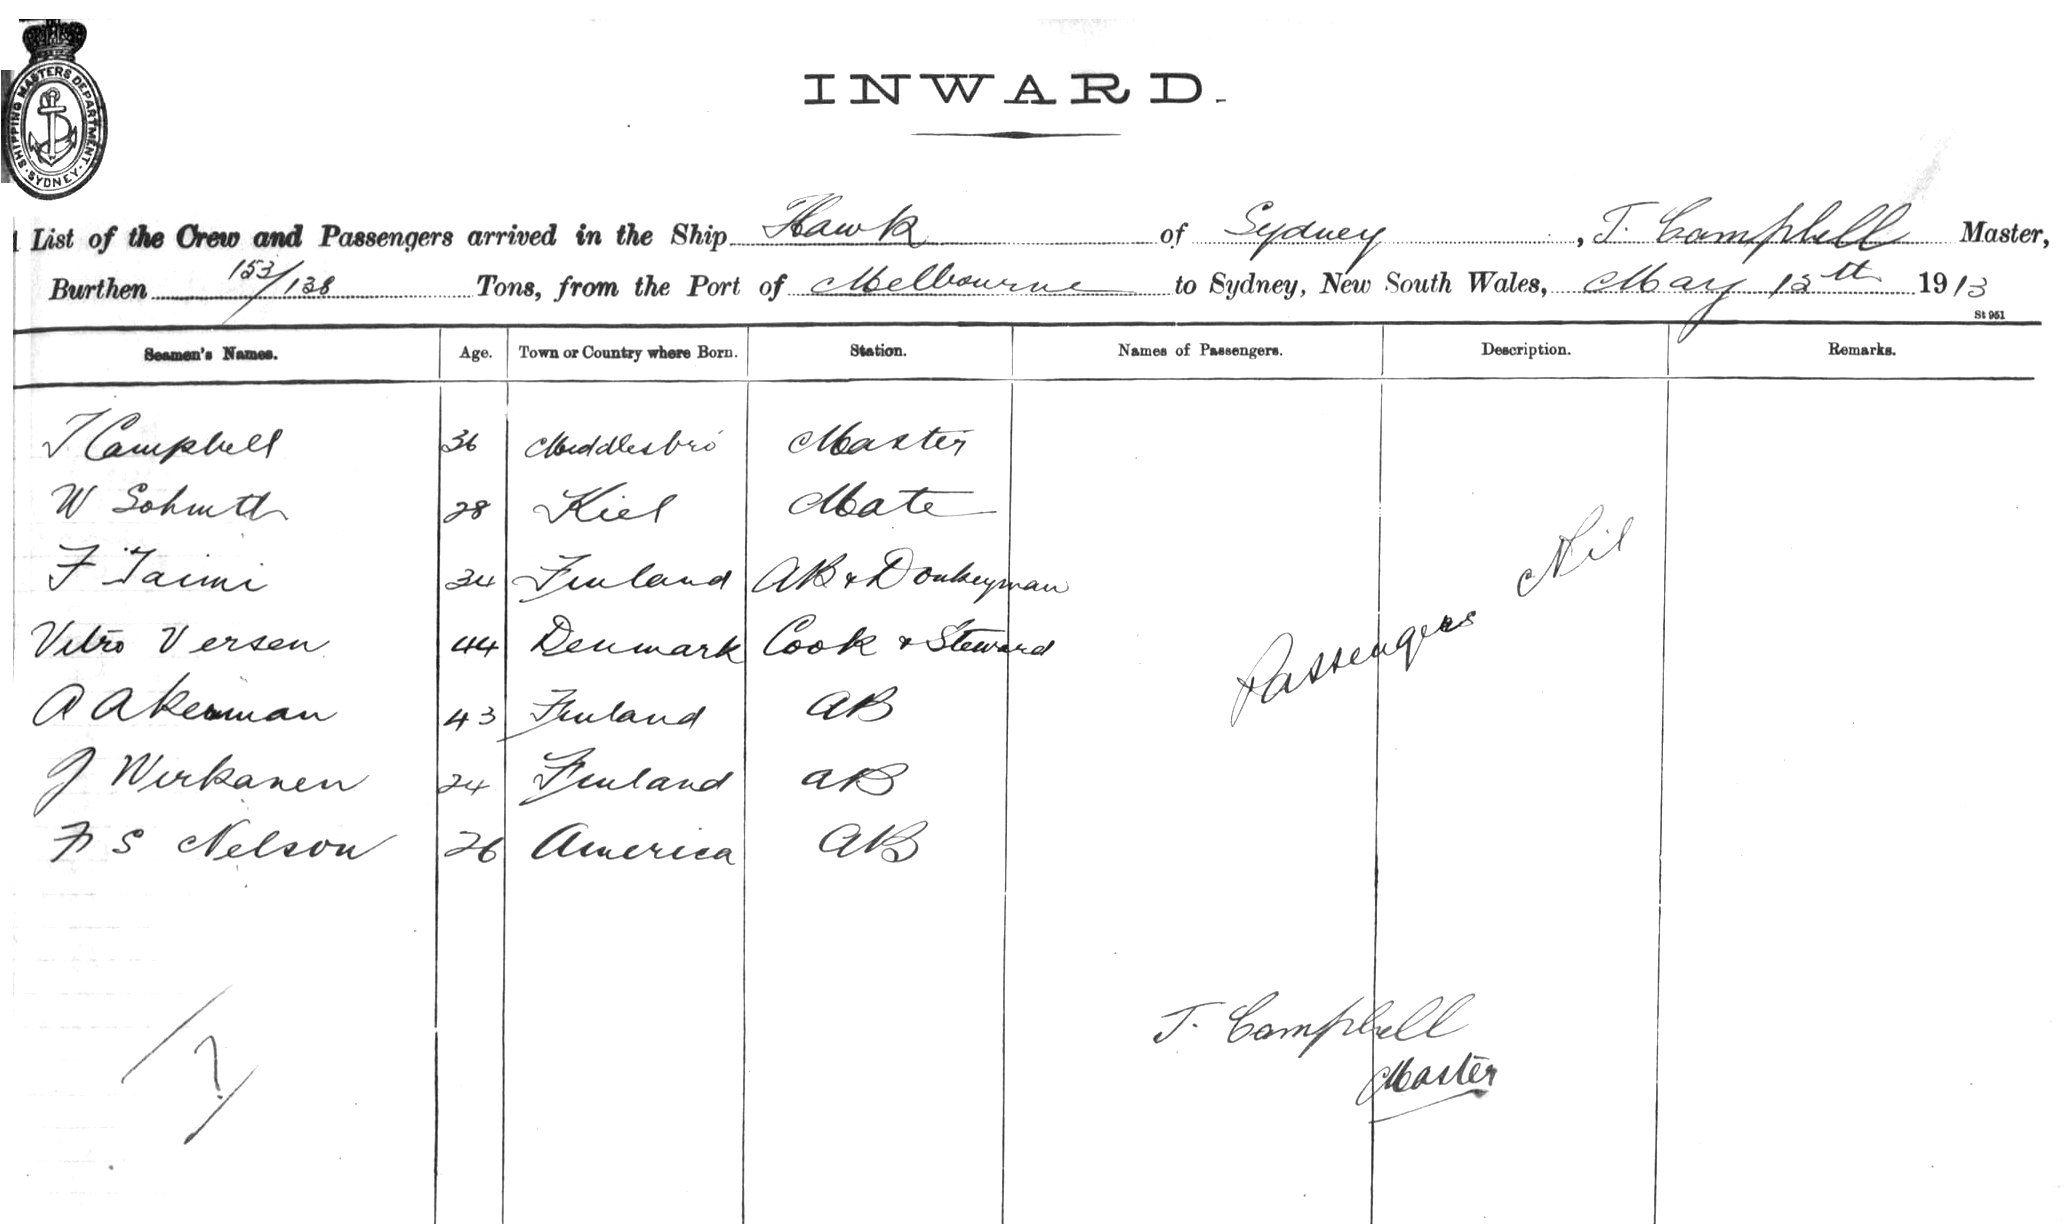 SHIPPING MASTERS DEPARTMENT
SYDNEY
INWARD.
List of the Crew and Passengers arrived in the Ship Hawk of Sydney, T. Campbell Master,
Burthen 153/138 Tons, from the Port of Melbourne to Sydney, New South Wales, May 12th 1913
St 951
Seamen's Names. Age. Town or Country where Born. Station. Names of Passengers. Description. Remarks.
T Campbell 36 Middlesbro Master
W Schmith 28 Kiel Mate
F Taimi 34 Finland AB & Donkeyman
Vitro Versen 44 Denmark Cook & Steward
A Akerman 43 Finland AB
J Wirkanen 24 Finland AB
F S Nelson 26 America AB
Passengers Nil
T. Campbell
Master
7